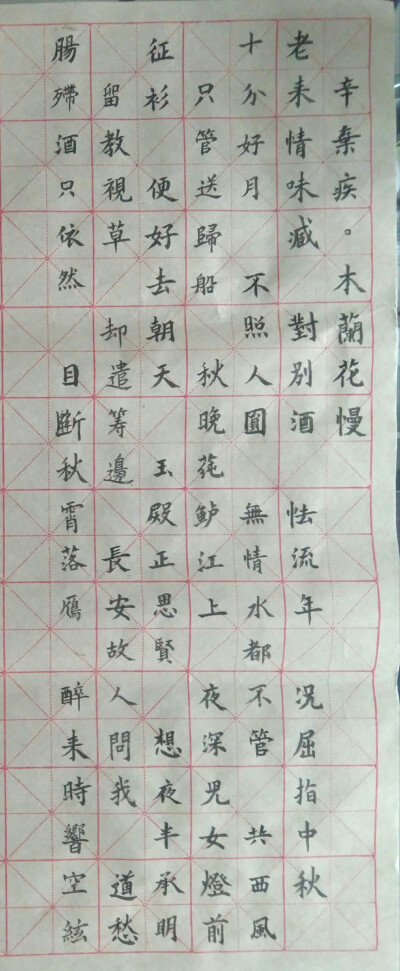 辛棄疾。木蘭花慢
老来情味減 對別酒 怯流年 况屈指中秋
十分好月 不照人圓 無情水都不管 共西風
只管送歸船 秋晚莼鲈江上 夜深兒女燈前
征衫 便好去朝天 玉殿正思賢 想夜半承明
留教視草 却遣筹邊 長安故人問我 道愁
腸殢酒只依然 目斷秋霄落鴈 醉来時響空絃